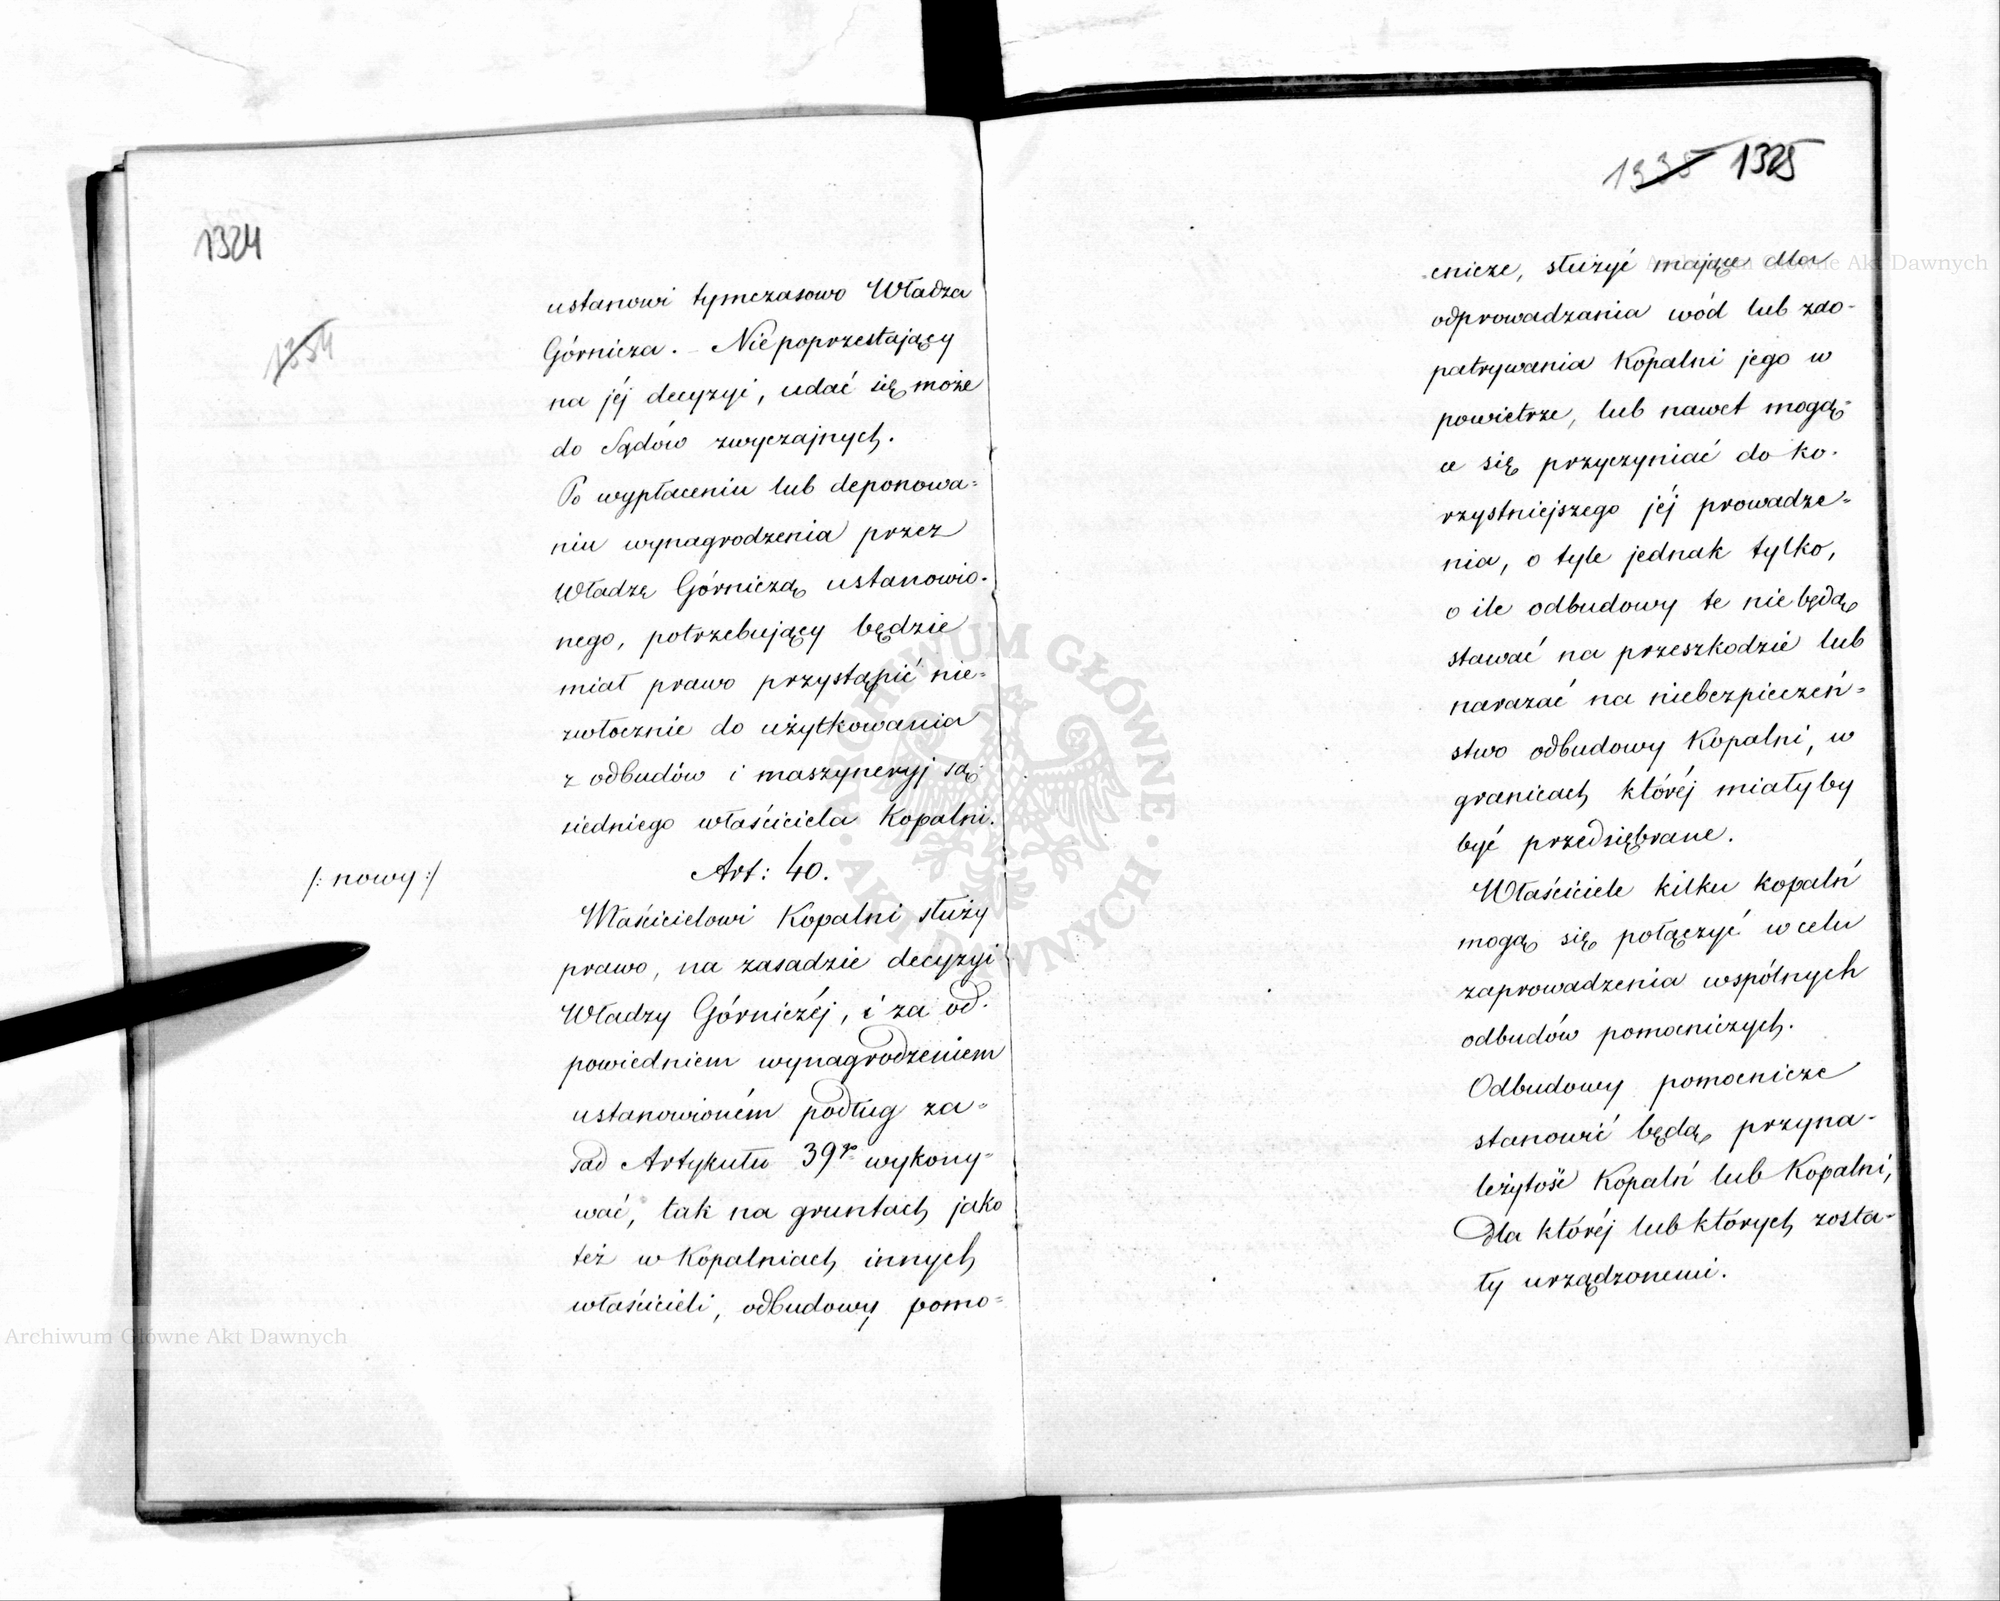 1324
1334
ustanowi tymczasowo Władza
Górnicza. – Niepoprzestający
na jéj decyzyi, udać się może
do Sądów zwyczajnych.
Po wypłaceniu lub deponowa=
niu wynagrodzenia przez
Władzę Górniczą ustanowio-
nego, potrzebujący będzie
miał prawo przystąpić nie=
zwłocznie do użytkowania
z odbudów i maszyneryj są=
siedniego właściciela Kopalni.
/: nowy :/
Art: 40.
Właścicielowi Kopalni służy
prawo, na zasadzie decyzyi
Władzy Górniczéj, i za od-
powiedniem wynagrodzeniem
ustanowioném podług za=
sad Artykułu 39go wykony=
wać, tak na gruntach jako
też w Kopalniach innych
właścicieli, odbudowy pomo=
1335 1325
cnicze, służyć mające dla
odprowadzania wód lub zao-
patrywania Kopalni jego w
powietrze, lub nawet mogą=
ce się przyczyniać do ko-
rzystniejszego jéj prowadze=
nia, o tyle jednak tylko,
o ile odbudowy te nie będą
stawać na przeszkodzie lub
narazać na niebezpieczeń=
stwo odbudowy Kopalni, w
granicach któréj miałyby
być przedsiębrane.
Właściciele kilku kopalń
mogą się połączyć w celu
zaprowadzenia wspólnych
odbudów pomocniczych.
Odbudowy pomocnicze
stanowić będą przyna-
leżytość Kopalń lub Kopalni,
dla któréj lub których zosta=
ły urządzonemi.
ARCHIWUM GŁÓWNE · AKT DAWNYCH ·
Archiwum Główne Akt Dawnych
Archiwum Główne Akt Dawnych